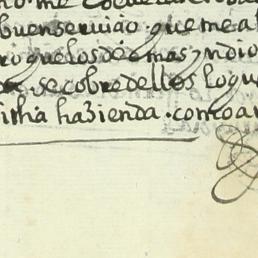 buen serviçio que me a
que los demas yndio
se cobre dellos lo que
dicha hazienda. como a